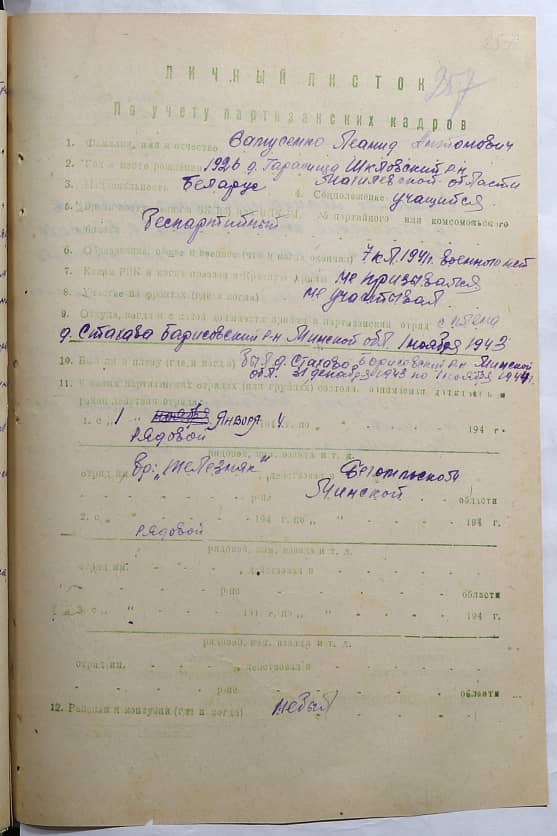 257
257
ЛИЧНЫЙ ЛИСТОК
По учету партизанских кадров
1. Фамилия, имя и отчество Вапусенко Леанид Антонович
2. Год и место рождения 1926 д. Гаралища Шкловский р-н
3. Национальность Беларус Магилевской области
4. Соцположение учащийся
5. партийного или комсомольского
билета Беспартийный
6. Образование, общее и военное (что и когда окончил) 7 кл 1941г. военного нет
7. Каким РВК и когда призван в Красную Армию не призывался
8. Участие на фронтах (где и когда) не участывал
9. Откуда, когда и с какой должности пришел в партизанский отряд с плена
д. Стахава Барисовский р-н Минской обл. 1 ноября 1943
10. Был ли в плену (где, и когда) Был д. Стахаво Борисовский р-н Минской
обл. 31 декабря 1943 по 1 ноября 1944г.
11. В каких партизанских отрядах (или группах) состоял, занимаемая должность и
район действия отряда:
1. с „ 1 " января 4 194 г.
рядовой
рядовой, ком. взвода и т. д.
отряд им. Бр. „Железняк" действовал в Бегомльской
р-не Минской области
2. с „ " 194 г. по „ " 194 г.
рядовой
рядовой, ком. взвода и т. д.
отряд им. действовал в
р-не области
3. с „ " 194 г. по „ " 194 г.
рядовой, ком. взвода и т. д.
отряд им. „ действовал в
р-не области
12. Ранения и контузии (где и когда) не был